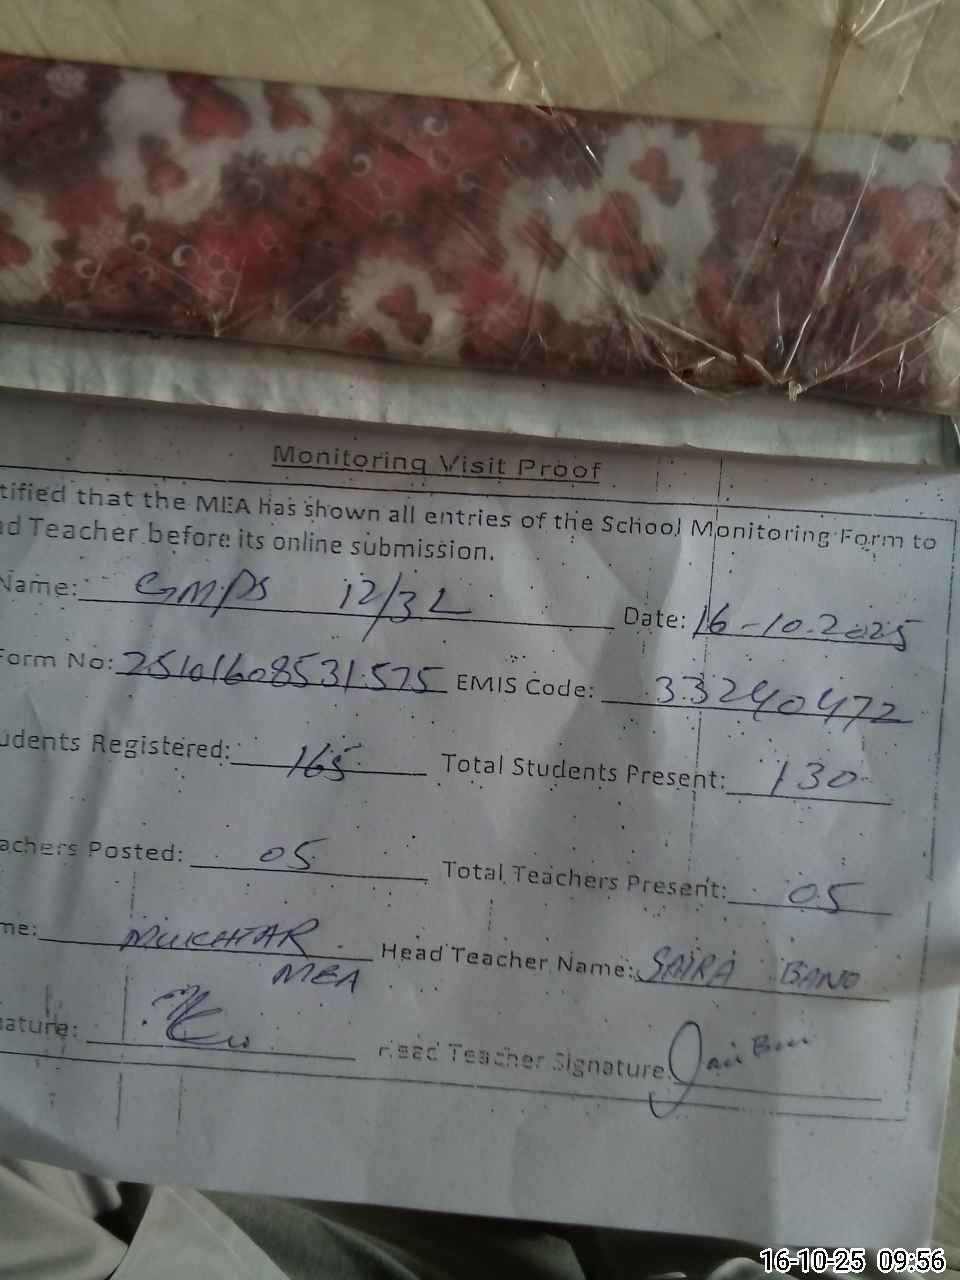 Monitoring Visit Proof
tified that the MEA Has shown all entries of the School Monitoring Form to
ad Teacher before its online submission.
Name: GMPS 12/3L Date: 16-10-2025
Form No: 25101608531575 EMIS Code: 33240472
udents Registered: 165 Total Students Present: 130
achers Posted: 05 Total Teachers Present: 05
me: MUKHTAR Head Teacher Name: SAIRA BANO
MEA
nature: Head Teacher Signature:
16-10-25 09:56